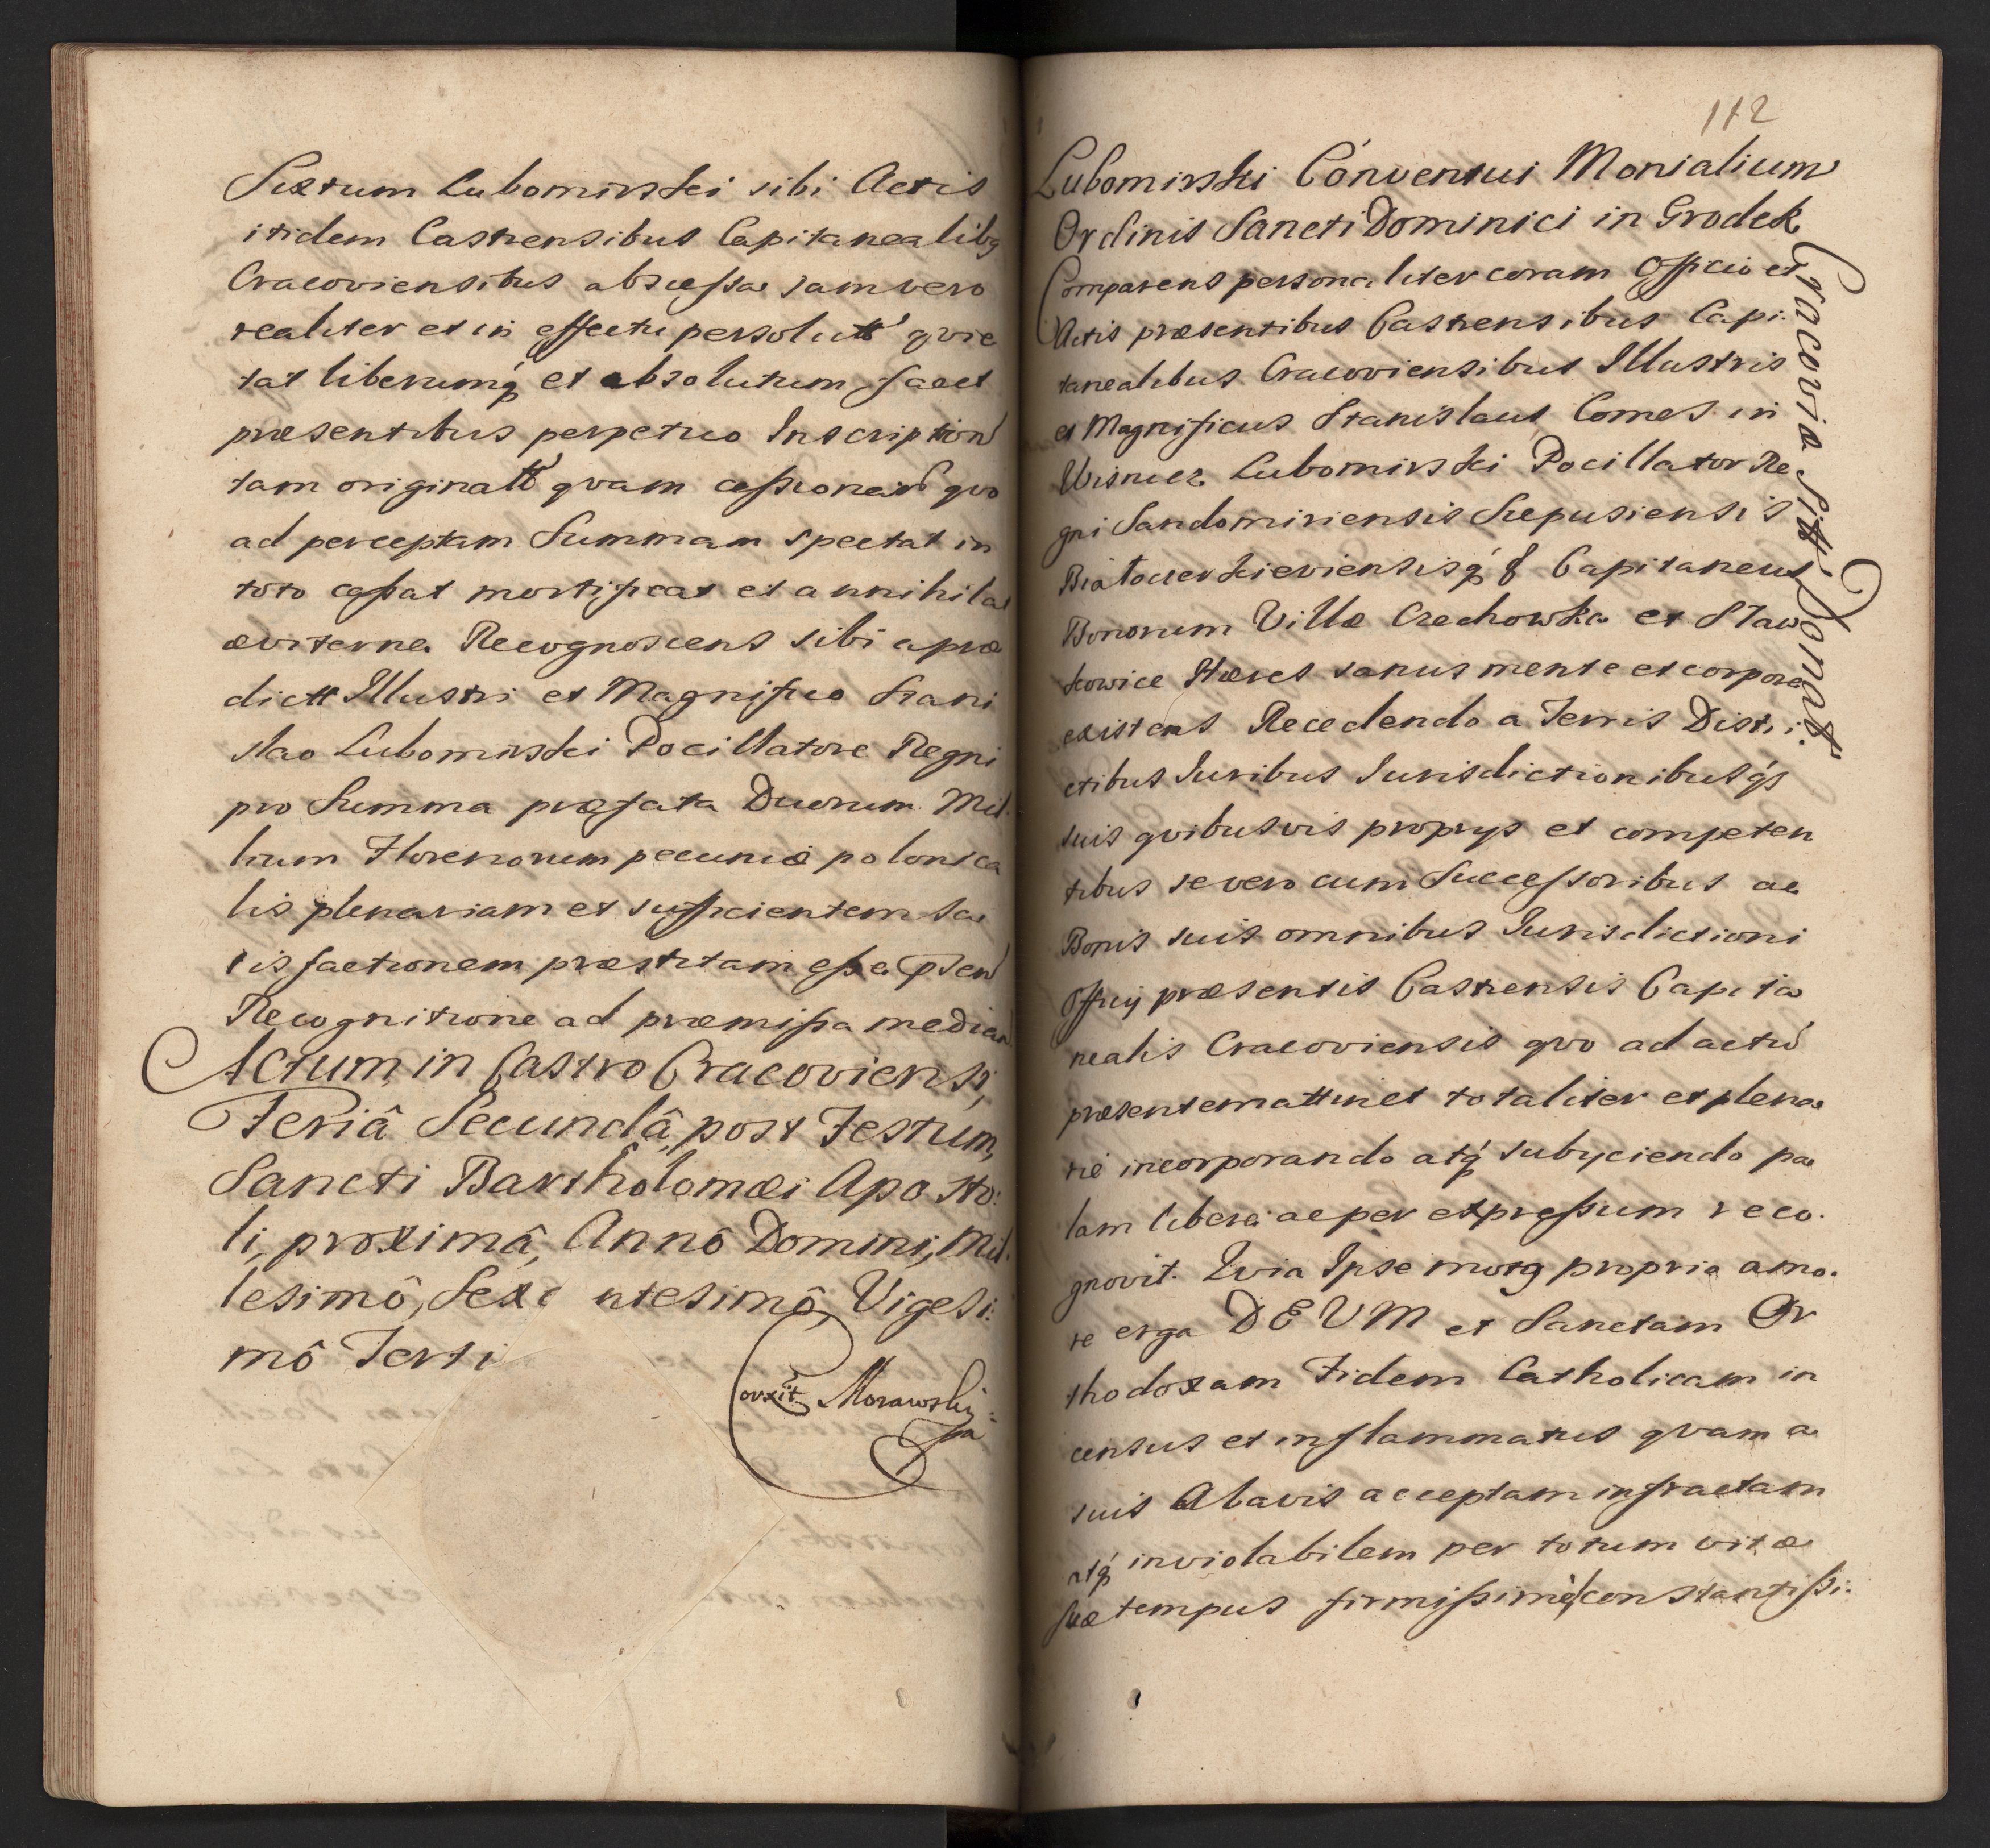 Sextum Lubomirski sibi Actis
itidem Castrensibus Capitanealibq
Cracoviensibus abscessa jam vero
realiter et in effectu persolutt qvie
tat liberumq et absolutum facit
præsentibus perpetuo Inscription
tam originalt qvam cessionem qvo
ad perceptam Summam spectat in
toto cassat mortificat et annihilat
æviterne Recognoscens sibi a præ
dictt Illustri et Magnifico Stani
slao Lubomirski Pocillatore Regni
pro Summa præfata Duorum Mil:
lium Florenorum pecuniæ polonica
lis plenariam et sufficientem sa
tisfactionem præstitam esse
Recognitione ad præmissa median
Actum in Castro Cracoviensi,
Feriâ Secundâ, post Festum,
Sancti Bartholomæi Aposto:
li, proximâ, Annô Domini, Mil:
lesimô, Sexc ntesimô, Vigesi:
mô Terti
Corrxit Morawski
112
Lubomirski Conventui Monialium
Ordinis Sancti Dominici in Grodek
Cracoviæ Sitt: Donat
Comparens personaliter coram Officio et
Actis præsentibus Castrensibus Capi:
tanealibus Cracoviensibus Illustris
et Magnificus Stanislaus Comes in
Wisnicz Lubomirski Pocillator Re
gni Sandomiriensis Scepusiensis
Białocerkieviensisq & Capitaneus
Bonorum Villæ Czechowka et Staw
kowice Hæres sanus mente et corpore
existens Recedendo a Terris Distri:
ctibus Iuribus Iurisdictionibusqs
suis qvibusvis proprys et competen
tibus se vero cum Successoribus ac
Bonis suis omnibus Iurisdictioni
Officij præsentis Castrensis Capita
nealis Cracoviensis qvo ad actu
præsentem attinet totaliter et plena
rie incorporando atq subijciendo pa
lam libere ac per expressum reco:
gnovit. Qvia Ipse propria amo:
re erga DEUM et Sanctam Or
thodoxam Fidem Catholicam in
census et inflammatus qvam a
suis Abavis acceptam infractam
atq inviolabilem per totum vitæ
suæ tempus firmissime constantissi: